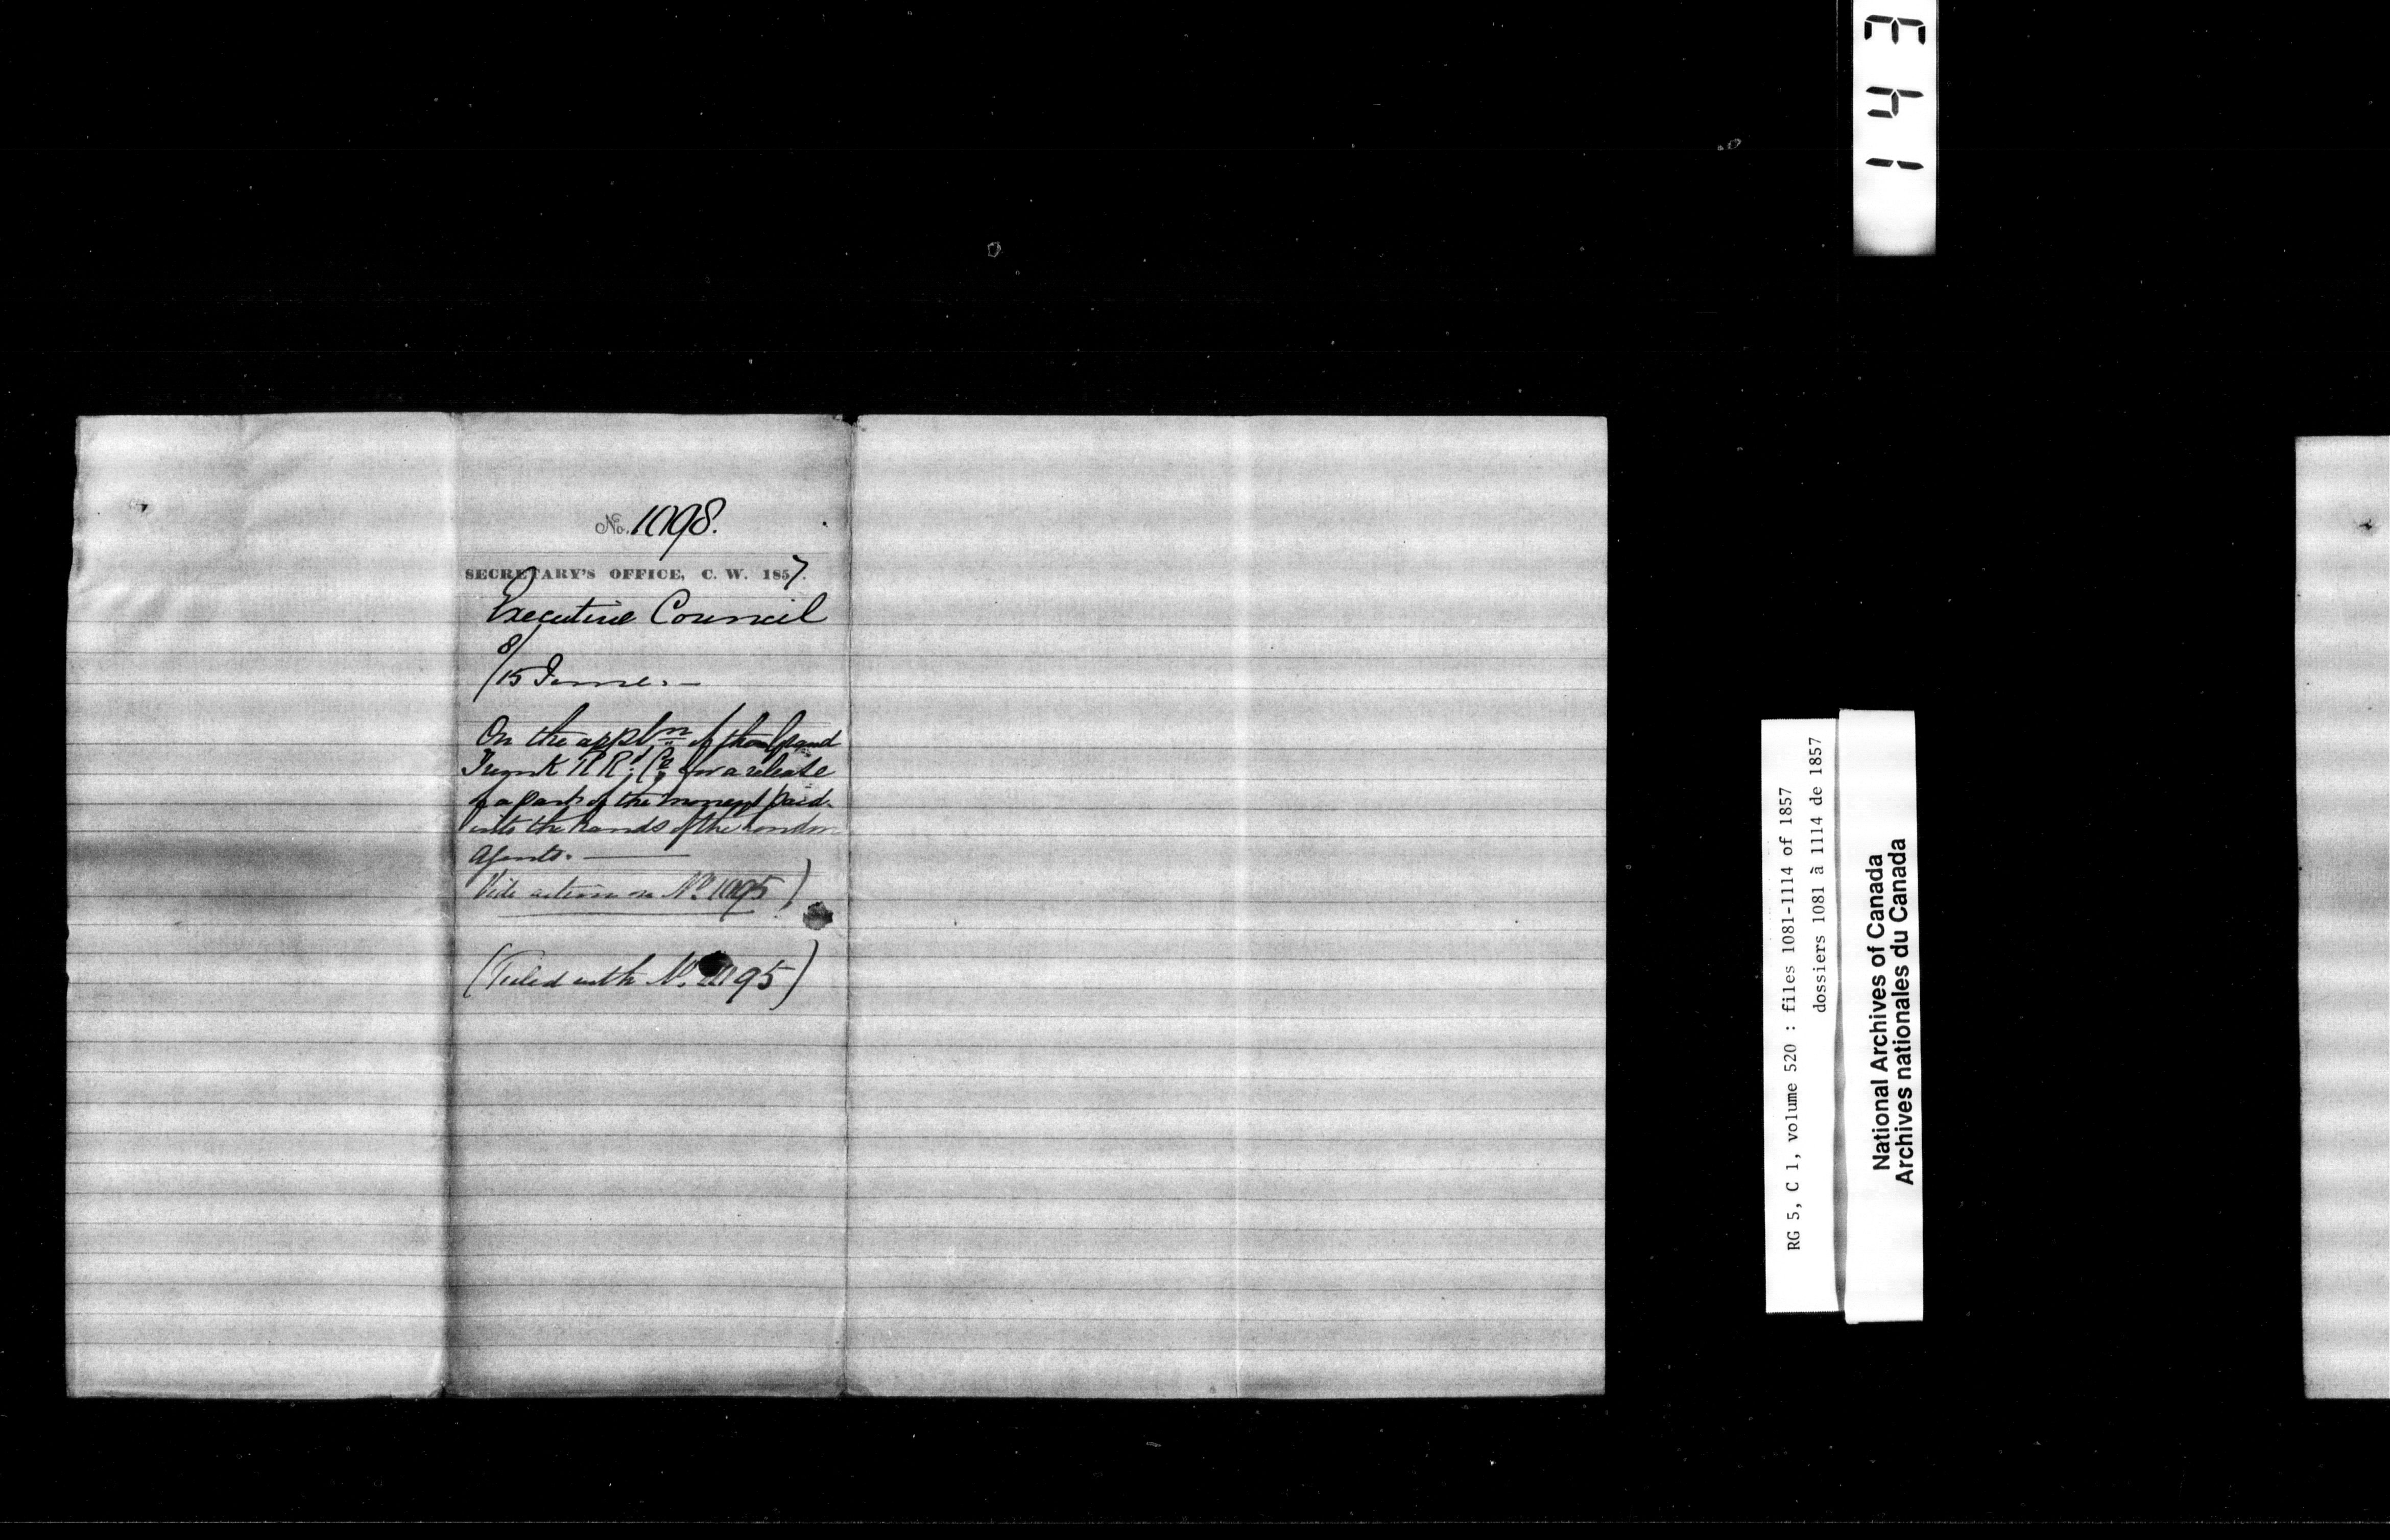 No. 1098.
SECRETARY'S OFFICE, C. W. 1857.
Executive Council
8/
/15 June. —
On the appln of the Grand
Trunk RRd; Co for a release
of a part of the moneys paid
into the hands of the London
Agents. —
Vide action on No. 1095)
(Filed with No. 1095)
143
RG 5, C 1, volume 520 : files 1081-1114 of 1857
dossiers 1081 à 1114 de 1857
National Archives of Canada
Archives nationales du Canada